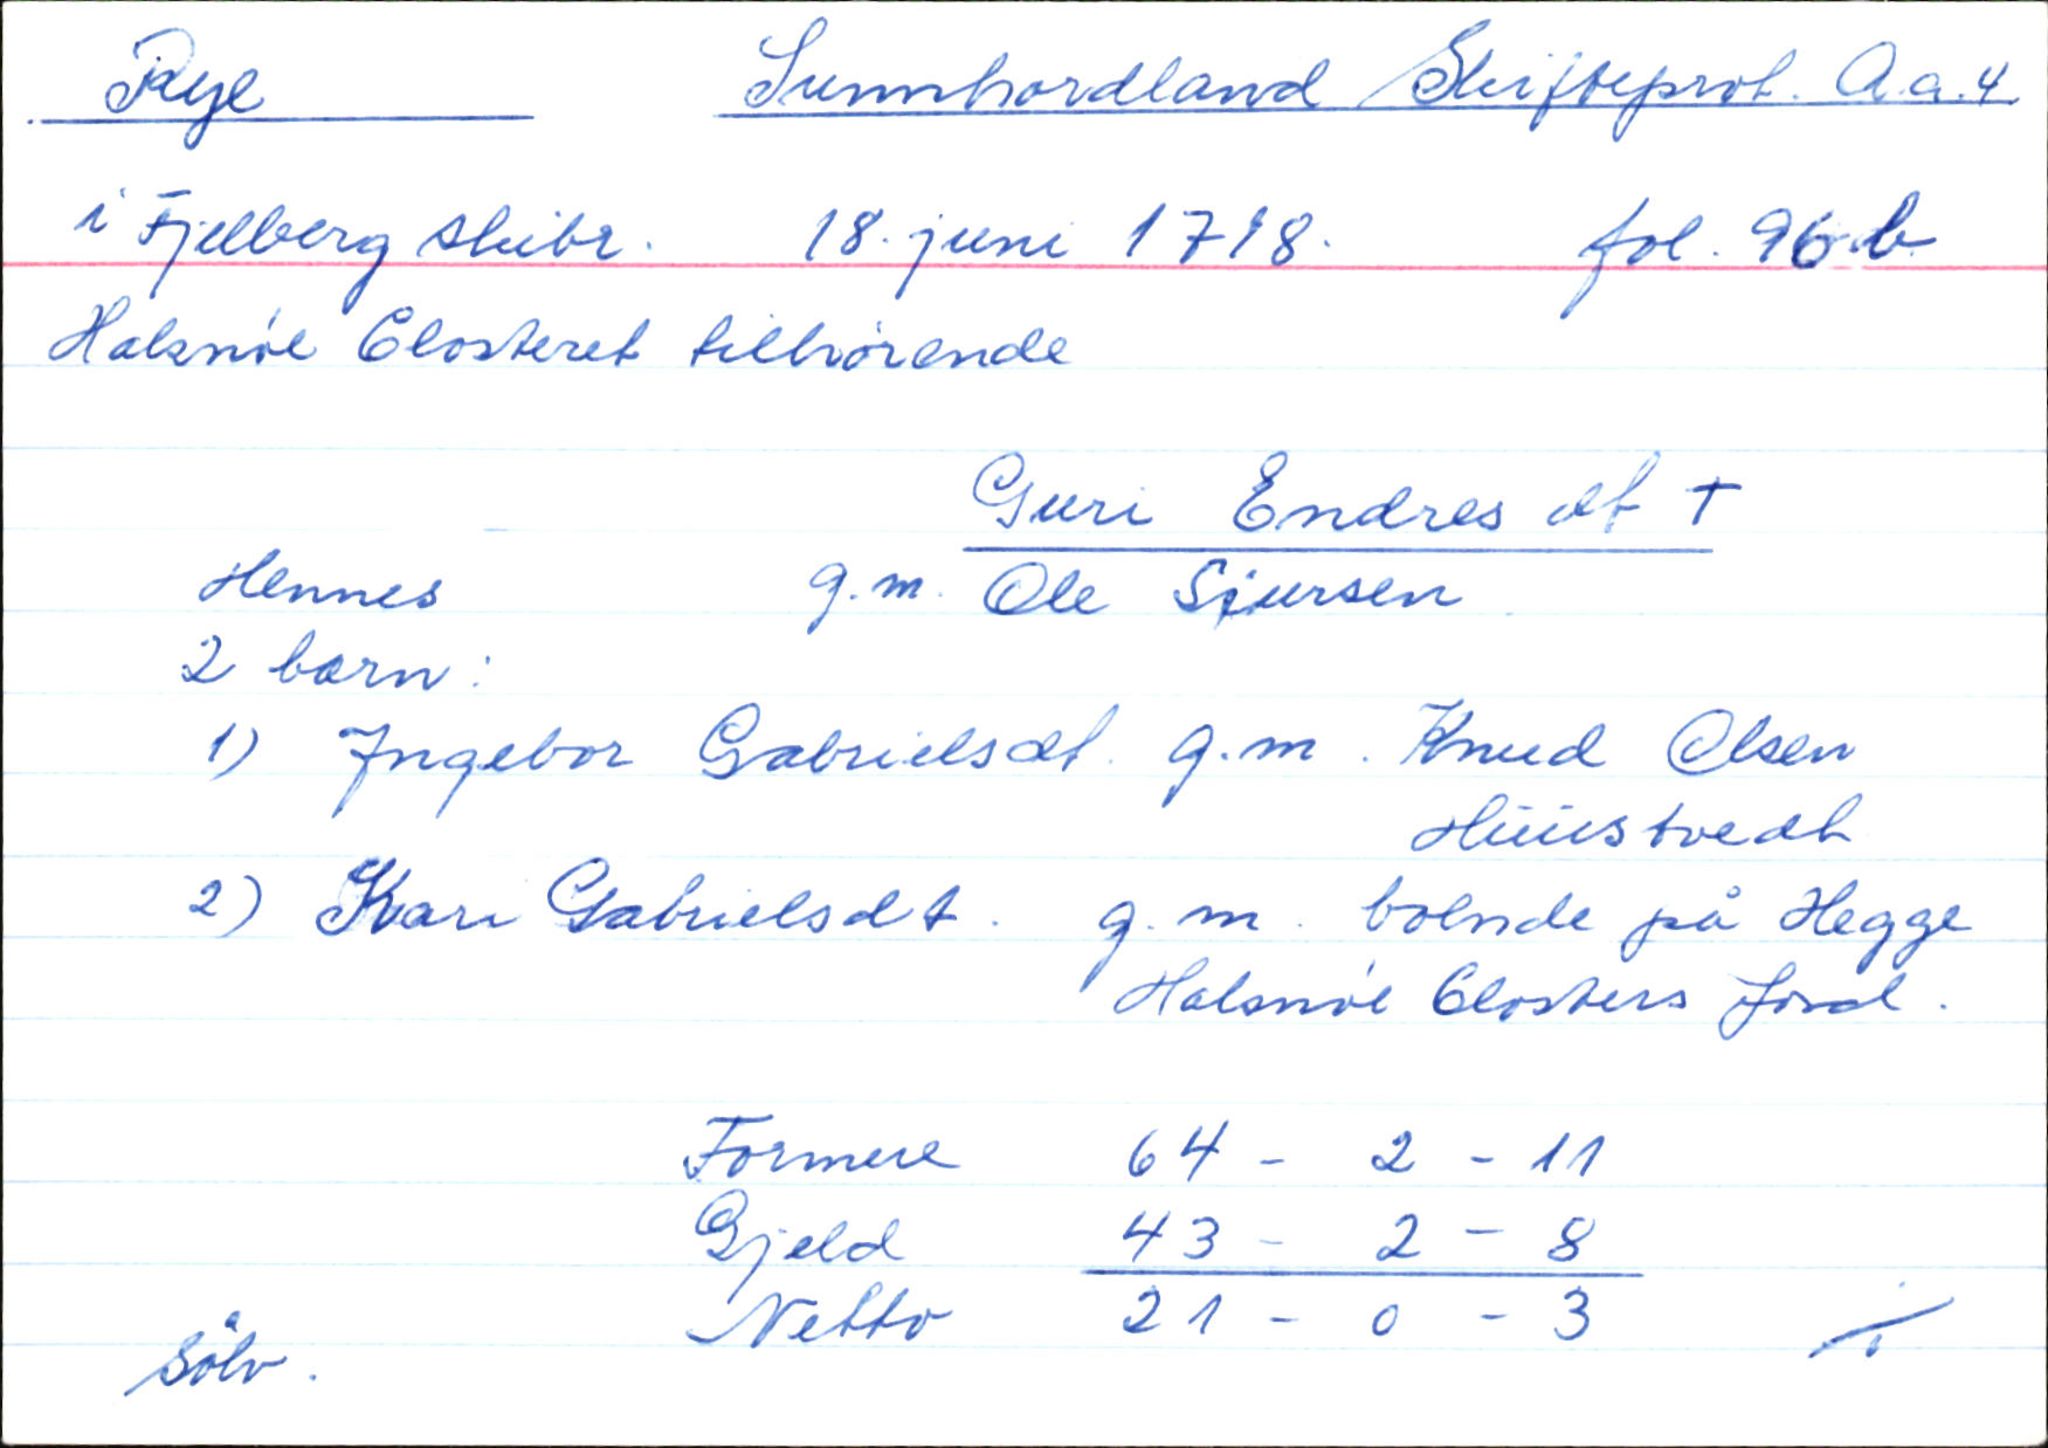 Rye Sunnhordland Skifteprot. A.a.4
i Fjelberg skibr. 18. juni 1718. fol. 96 b
Halsnöe Closteret tilhörende
Guri Endres dt †
Hennes g.m. Ole Siursen
2 born:
1) Ingebor Gabrielsdt. g.m. Knud Olsen
Hüüstvedt
2) Kari Gabrielsdt. g.m. boende på Hegge
Halsnöe Closters Jord.
Formue 64 - 2 - 11
Gjeld 43 - 2 - 8
Netto 21 - 0 - 3
Sölv.